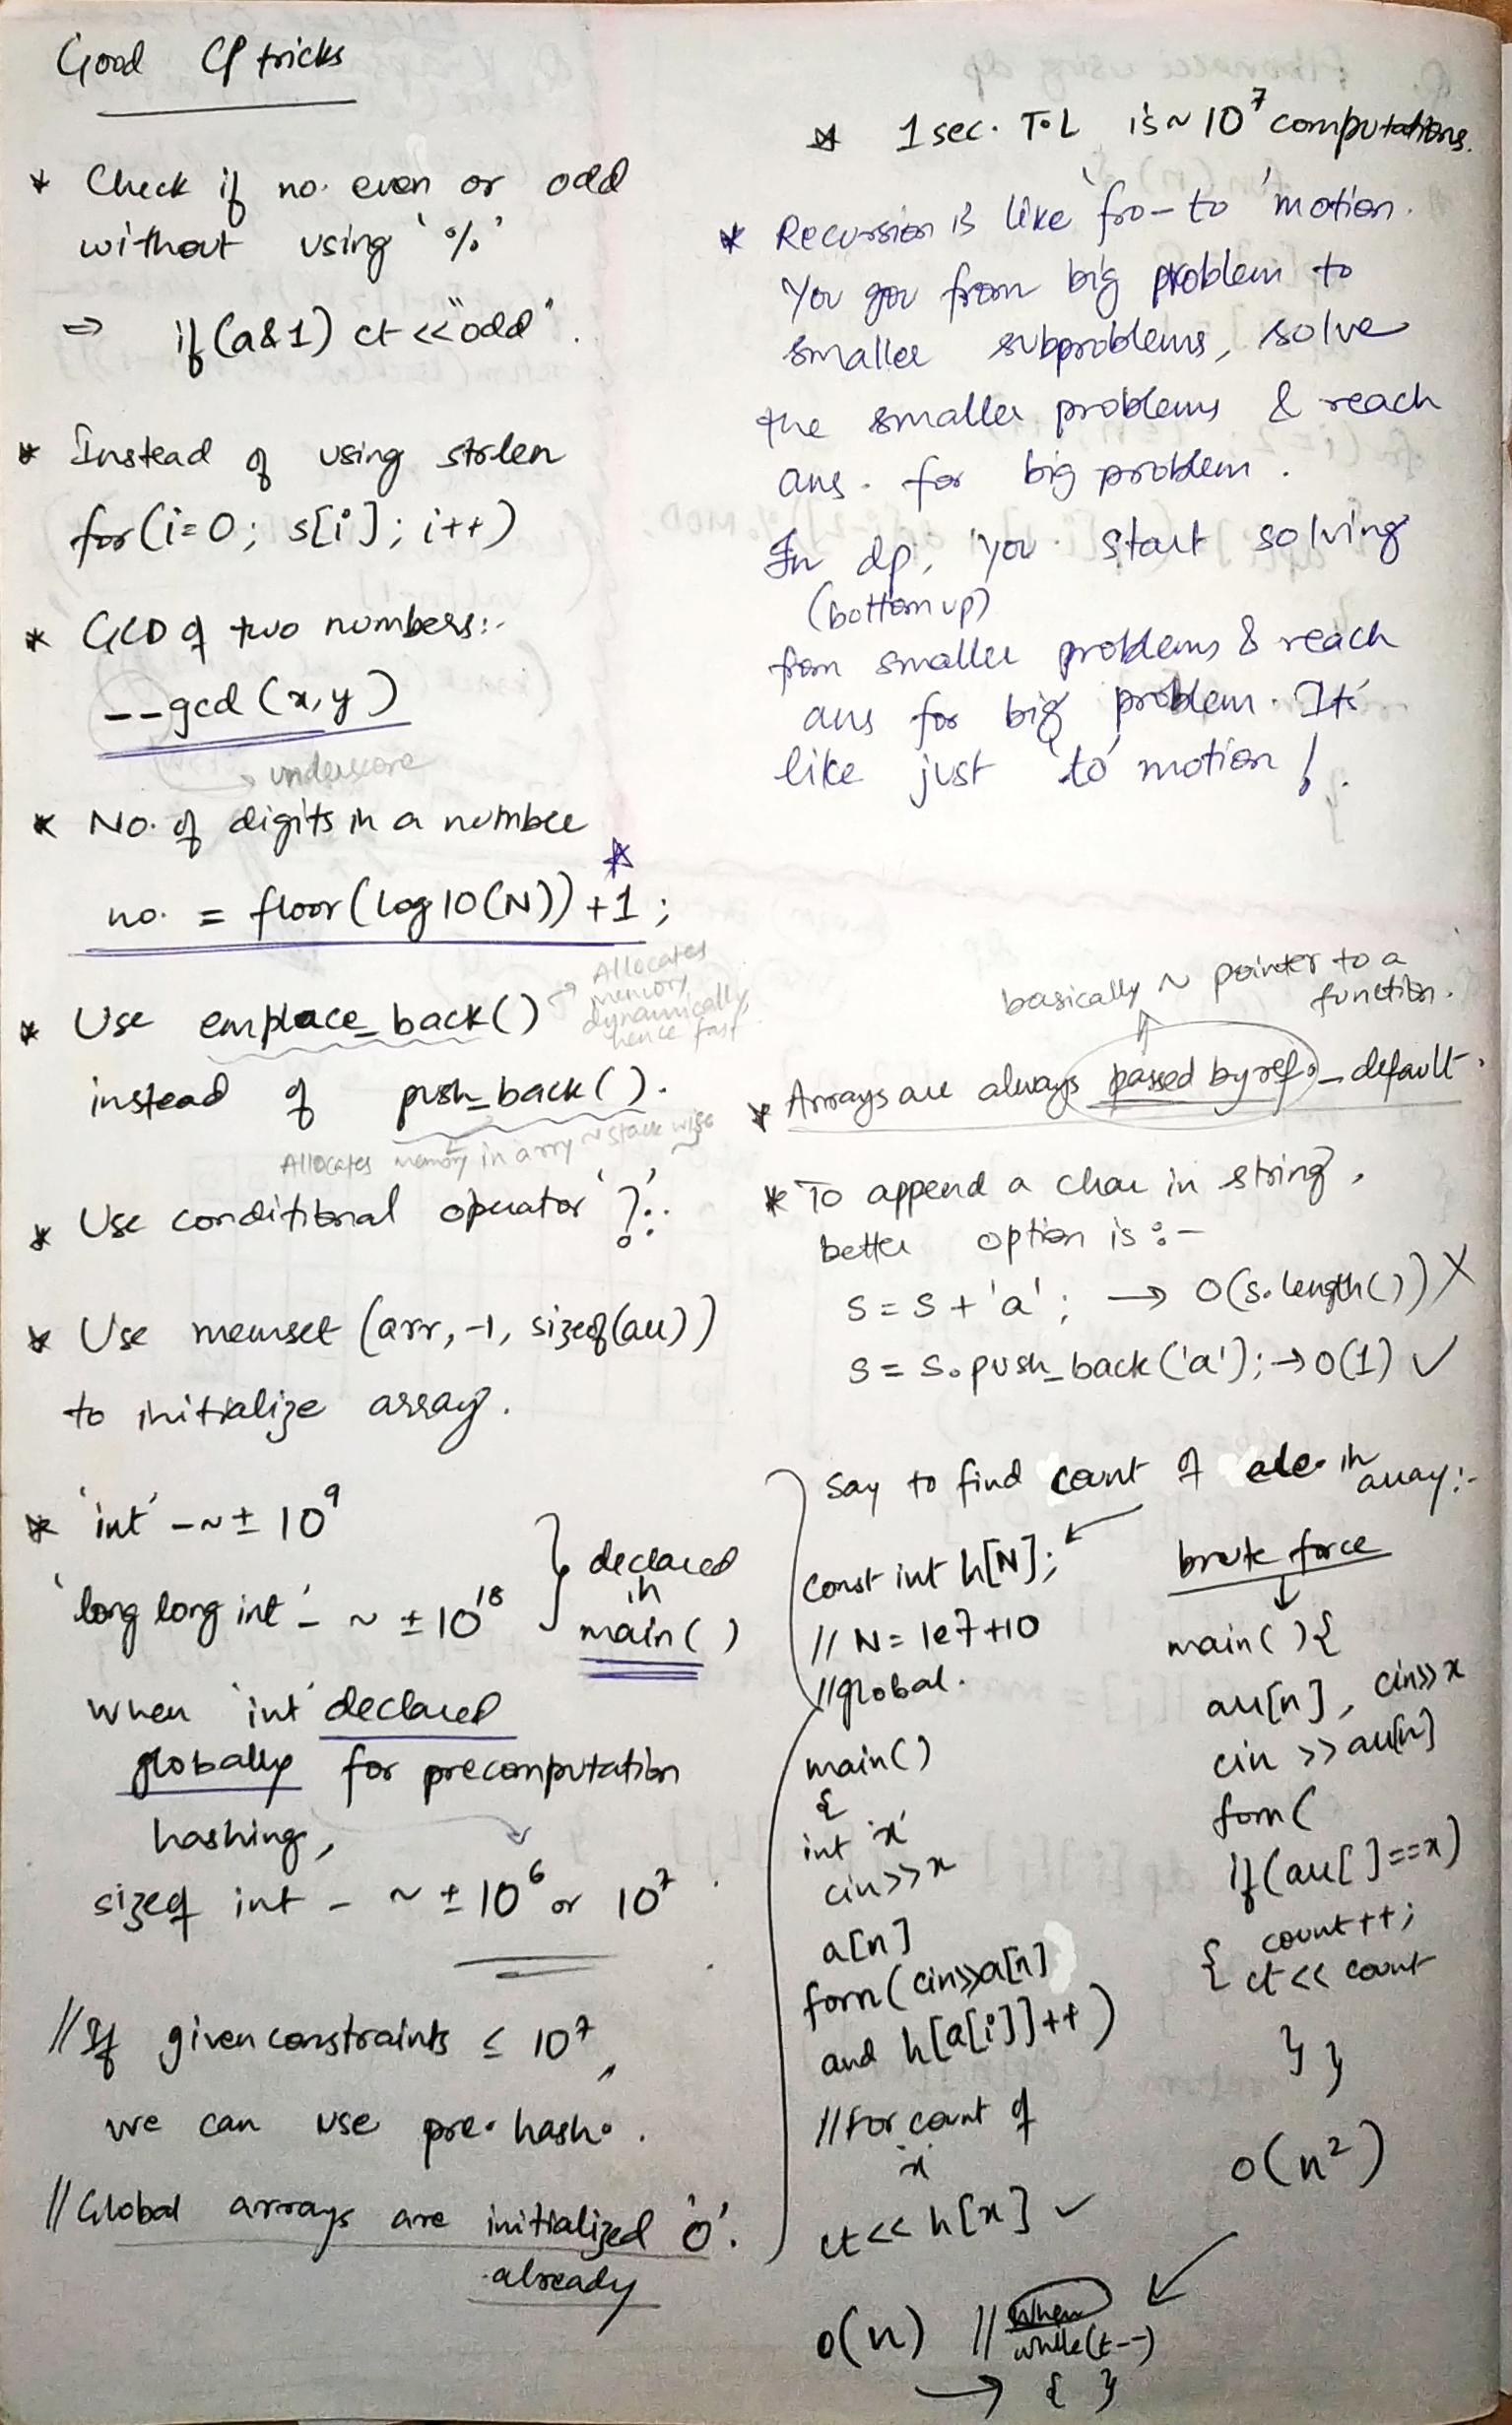 Good CP tricks
* Check if no. even or odd
without using '%'
⇒ if (a&1) ct <<"odd".
* Instead of using strlen
for(i=0; s[i]; i++)
* GCD of two numbers:-
__gcd (x,y)
→ underscore
* No. of digits in a number
no. = floor(log10(N))+1;
* Use emplace_back()
→ Allocates
memory
dynamically,
hence fast
instead of push_back().
Allocates memory in arry ~ stack wise
* Use conditional operator '?:'
* Use memset (arr,-1, sizeof(arr))
to initialize array.
* 'int' - ~ ± 10⁹
'long long int' - ~ ± 10¹⁸
} declared
in
main( )
when 'int' declared
globally for precomputation
hashing,
sizeof int - ~ ± 10⁶ or 10⁷
// If given constraints ≤ 10⁷,
we can use pre. hash.
// Global arrays are initialized '0'.
already
* 1 sec. T.L is ~ 10⁷ computations.
* Recursion is like 'fro-to' motion.
You gou from big problem to
smaller subproblems, solve
the smaller problems & reach
ans. for big problem.
In dp, you start solving
(bottom up)
from smaller problems & reach
ans for big problem. It's
like just 'to' motion!
basically ~ pointer to a
function.
* Arrays are always passed by ref. - default.
* To append a char in string,
better option is :-
s = s + 'a'; → O(s.length()) X
s = s.push_back('a'); → O(1) ✓
Say to find count of ele. in array:-
const int h[N];
// N = 1e7+10
// global.
main()
{
int 'x'
cin>>x
a[n]
forn(cin>>a[n]
and h[a[i]]++)
// For count of
'x'
ct<< h[x] ✓
O(n) // when
while(t--)
→ { }
brute force
↓
main( ){
arr[n], cin>>x
cin >>arr[n]
forn(
if(arr[ ]==x)
{ count++;
ct << count
} }
O(n²)